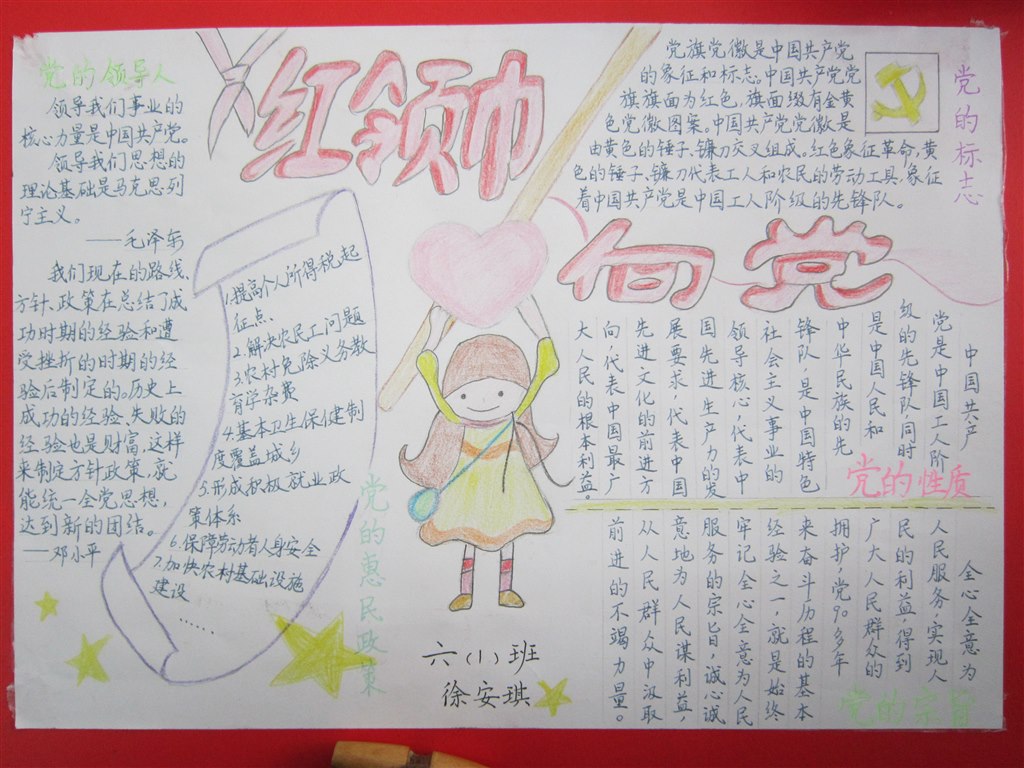 红领巾
向党
党的领导人
领导我们事业的
核心力量是中国共产党。
领导我们思想的
理论基础是马克思列
宁主义。
——毛泽东
我们现在的路线、
方针、政策在总结了成
功时期的经验和遭
受挫折的时期的经
验后制定的。历史上
成功的经验、失败的
经验也是财富,这样
来制定方针政策,就
能统一全党思想,
达到新的团结。
——邓小平
1.提高个人所得税起
征点
2.解决农民工问题
3.农村免除义务教
育学杂费
4.基本卫生保健制
度覆盖城乡
5.形成积极就业政
策体系
6.保障劳动者人身安全
7.加快农村基础设施
建设
......
党的惠民政策
党旗党徽是中国共产党
的象征和标志。中国共产党党
旗旗面为红色,旗面缀有金黄
色党徽图案。中国共产党党徽是
由黄色的锤子、镰刀交叉组成。红色象征革命,黄
色的锤子、镰刀代表工人和农民的劳动工具,象征
着中国共产党是中国工人阶级的先锋队。
党的标志
中国共产
党是中国工人阶
级的先锋队同时
是中国人民和
中华民族的先
锋队,是中国特色
社会主义事业的
领导核心,代表中
国先进生产力的发
展要求,代表中国
先进文化的前进方
向,代表中国最广
大人民的根本利益。
党的性质
全心全意为
人民服务,实现人
民的利益,得到
广大人民群众的
拥护,党90多年
来奋斗历程的基本
经验之一,就是始终
牢记全心全意为人民
服务的宗旨,诚心诚
意地为人民谋利益,
从人民群众中汲取
前进的不竭力量。
党的宗旨
六(1)班
徐安琪